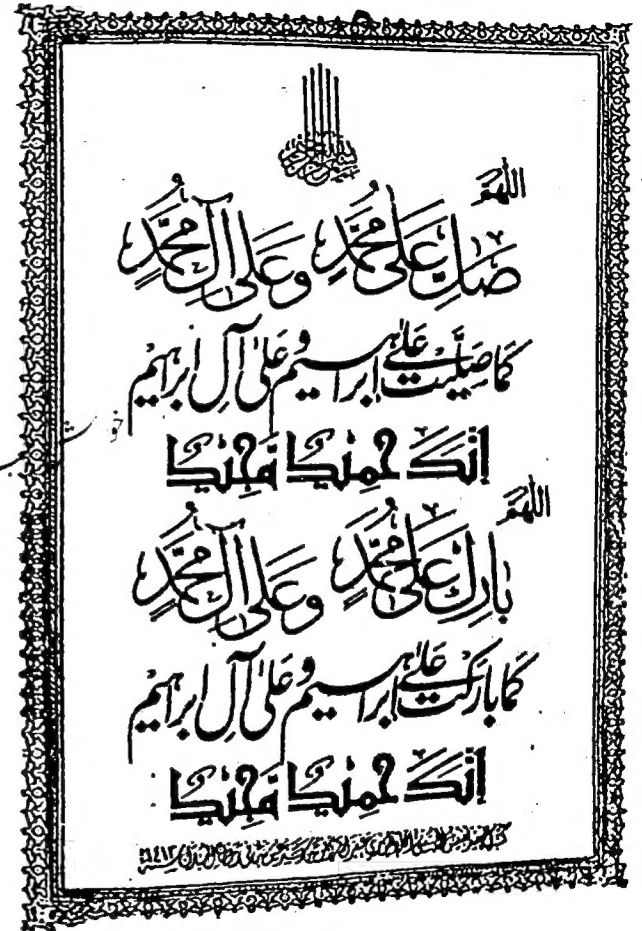 بسم الله الرحمن الرحيم
اللهم
صل على محمد وعلى آل محمد
كما صليت على ابراهيم وعلى آل ابراهيم
انك حميد مجيد
اللهم
بارك على محمد وعلى آل محمد
كما باركت على ابراهيم وعلى آل ابراهيم
انك حميد مجيد